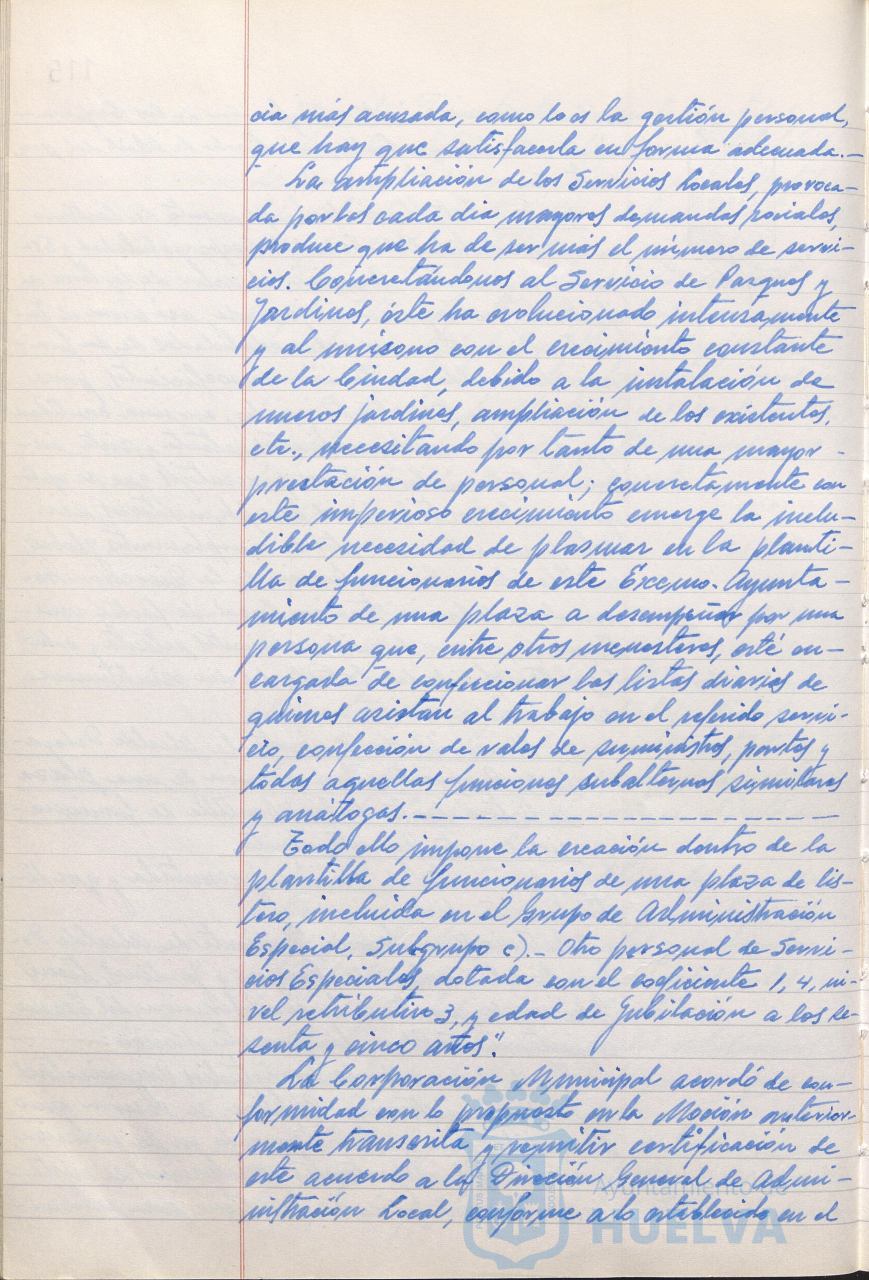 cia más acusada, como lo es la gestión personal,
que hay que satisfacerla en forma adecuada.-
La ampliación de los Servicios Locales, provoca-
da por los cada dia mayores demandas sociales,
produce que ha de ser mas el número de servi-
cios. Concretándonos al Servicio de Parques y
Jardines, éste ha evolucionado intensamente
y al unísono con el crecimiento constante
de la Ciudad, debido a la instalación de
nuevos jardines, ampliación de los existentes,
etc., necesitando por tanto de una mayor -
prestación de personal; concretamente con
este imperioso crecimiento emerge la inelu-
dible necesidad de plasmar en la planti-
lla de funcionarios de este Excmo. Ayunta-
miento de una plaza a desempeñar por una
persona que, entre otros menesteres, esté en-
cargada de confeccionar las listas diarias de
quienes asistan al trabajo en el referido servi-
cio, confección de vales de suministros, portes y
todas aquellas funciones subalternas similares
y análogas.- - - - - - - - - - - - - - - - - -
Todo ello impone la creación dentro de la
plantilla de funcionarios de una plaza de lis-
tero, incluida en el Grupo de Administración
Especial, Subgrupo c).- Otro personal de Servi-
cios Especiales, dotada con el coeficiente 1,4, ni-
vel retributivo 3, y edad de Jubilación a los se-
senta y cinco años".
La Corporación Municipal acordó de con-
formidad con lo propuesto en la Moción anterior-
mente transcrita y remitir certificación de
este acuerdo a la Dirección General de Admi-
nistración Local, conforme a lo establecido en el
Ayuntamiento de
HUELVA
115